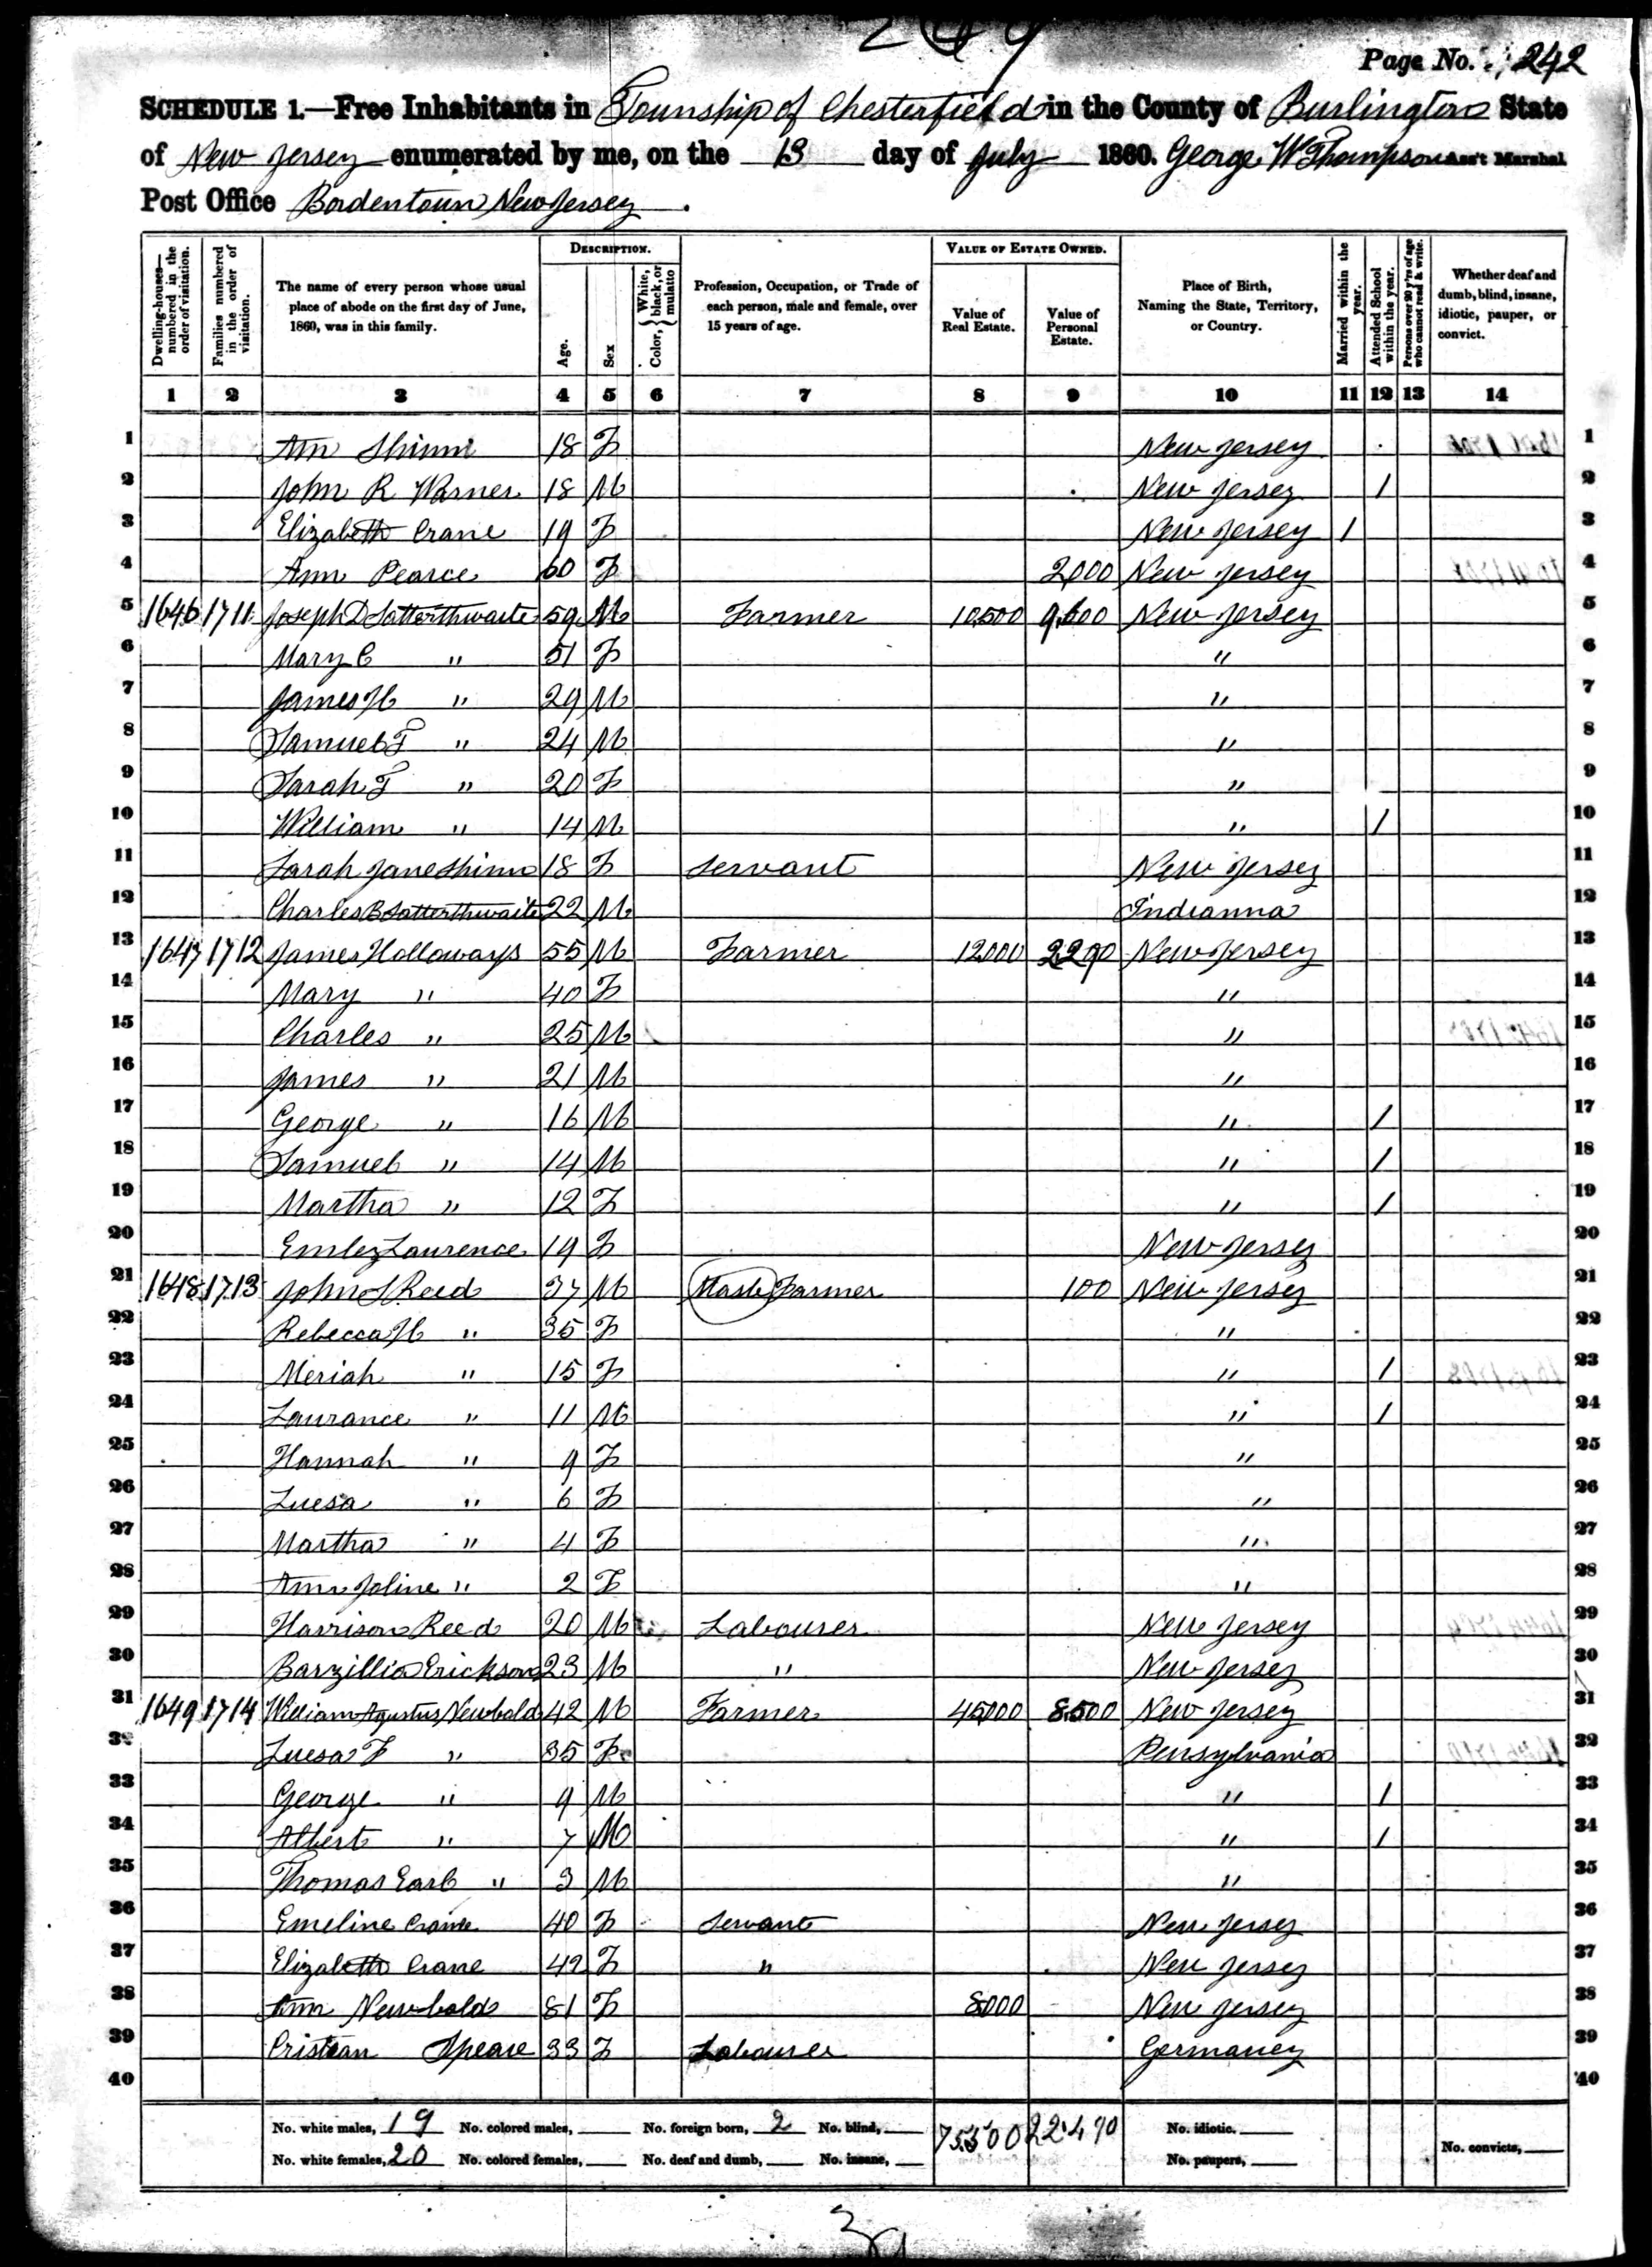 Page No. 242
SCHEDULE 1.—Free Inhabitants in Township of Chesterfield in the County of Burlington State
of New Jersey enumerated by me, on the 13 day of July 1860. George W Thompson Ass't Marshal
Post Office Bordentown New Jersey.
Dwelling-houses—numbered in the order of visitation. Families numbered in the order of visitation. The name of every person whose usual place of abode on the first day of June, 1860, was in this family. DESCRIPTION. Age. Sex Color, White, black, or mulatto Profession, Occupation, or Trade of each person, male and female, over 15 years of age. VALUE OF ESTATE OWNED. Value of Real Estate. Value of Personal Estate. Place of Birth, Naming the State, Territory, or Country. Married within the year. Attended School within the year. Persons over 20 y'rs of age who cannot read & write. Whether deaf and dumb, blind, insane, idiotic, pauper, or convict.
1 2 3 4 5 6 7 8 9 10 11 12 13 14
1 Ann Shinn 18 F New Jersey 1
2 John R Warner 18 M New Jersey / 2
3 Elizabeth Crane 19 F New Jersey / 3
4 Ann Pearce 60 F 2,000 New Jersey 4
5 1646 1711 Joseph D Satterthwaite 59 M Farmer 10500 9,600 New Jersey 5
6 Mary C " 51 F " 6
7 James H " 29 M " 7
8 Samuel T " 24 M " 8
9 Sarah T " 20 F " 9
10 William " 14 M " / 10
11 Sarah Jane Shinn 18 F Servant New Jersey 11
12 Charles B Satterthwaite 22 M Indianna 12
13 1647 1712 James Holloways 55 M Farmer 12000 2290 New Jersey 13
14 Mary " 40 F " 14
15 Charles " 25 M " 15
16 James " 21 M " 16
17 George " 16 M " / 17
18 Samuel " 14 M " / 18
19 Martha " 12 F " / 19
20 Emley Laurence 19 F New Jersey 20
21 1648 1713 John S Reed 37 M Farmer 100 New Jersey 21
22 Rebecca H " 35 F " 22
23 Meriah " 15 F " / 23
24 Laurance " 11 M " / 24
25 Hannah " 9 F " 25
26 Luesa " 6 F " 26
27 Martha " 4 F " 27
28 Ann Joline " 2 F " 28
29 Harrison Reed 20 M Labourer New Jersey 29
30 Barzillia Erickson 23 M " New Jersey 30
31 1649 1714 William Agustus Newbold 42 M Farmer 45000 8500 New Jersey 31
32 Luesa F " 35 F Pensylvania 32
33 George " 9 M " / 33
34 Albert " 7 M " / 34
35 Thomas Earl " 3 M " 35
36 Emeline Crane 40 F Servant New Jersey 36
37 Elizabeth Crane 42 F " New Jersey 37
38 Ann Newbold 81 F 8000 New Jersey 38
39 Cristean Speare 33 F Labourer Germaney 39
40 40
No. white males, 19 No. colored males, No. foreign born, 2 No. blind, 75500 22490 No. idiotic.
No. white females, 20 No. colored females, No. deaf and dumb, No. insane, No. paupers, No. convicts,